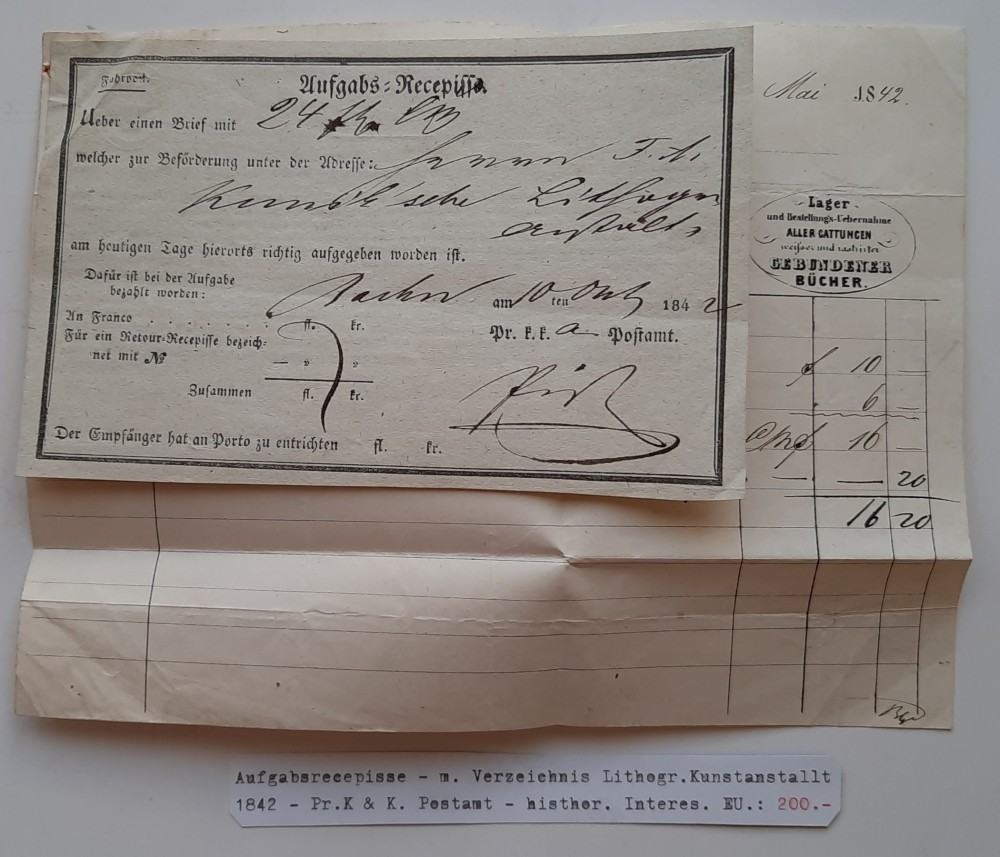 Fahrpost.
Aufgabs-Recepisse.
Ueber einen Brief mit 24
welcher zur Beförderung unter der Adresse: Herrn F. A.
am heutigen Tage hierorts richtig aufgegeben worden ist.
Dafür ist bei der Aufgabe
bezahlt worden:
am 10 ten 1842
An Franco . . . . . . . fl. kr.
Pr. k. k. Postamt.
Für ein Retour-Recepisse bezeich-
net mit № — » »
Zusammen fl. kr.
Der Empfänger hat an Porto zu entrichten fl. kr.
Mai 1842.
Lager
und Bestellungs-Uebernahme
ALLER GATTUNGEN
weisser und rastrirter
GEBUNDENER
BÜCHER.
10 —
6 —
16 —
— — 20
16 20
Aufgabsrecepisse - m. Verzeichnis Lithogr.Kunstanstallt
1842 - Pr.K & K. Postamt - histhor. Interes. EU.: 200.-